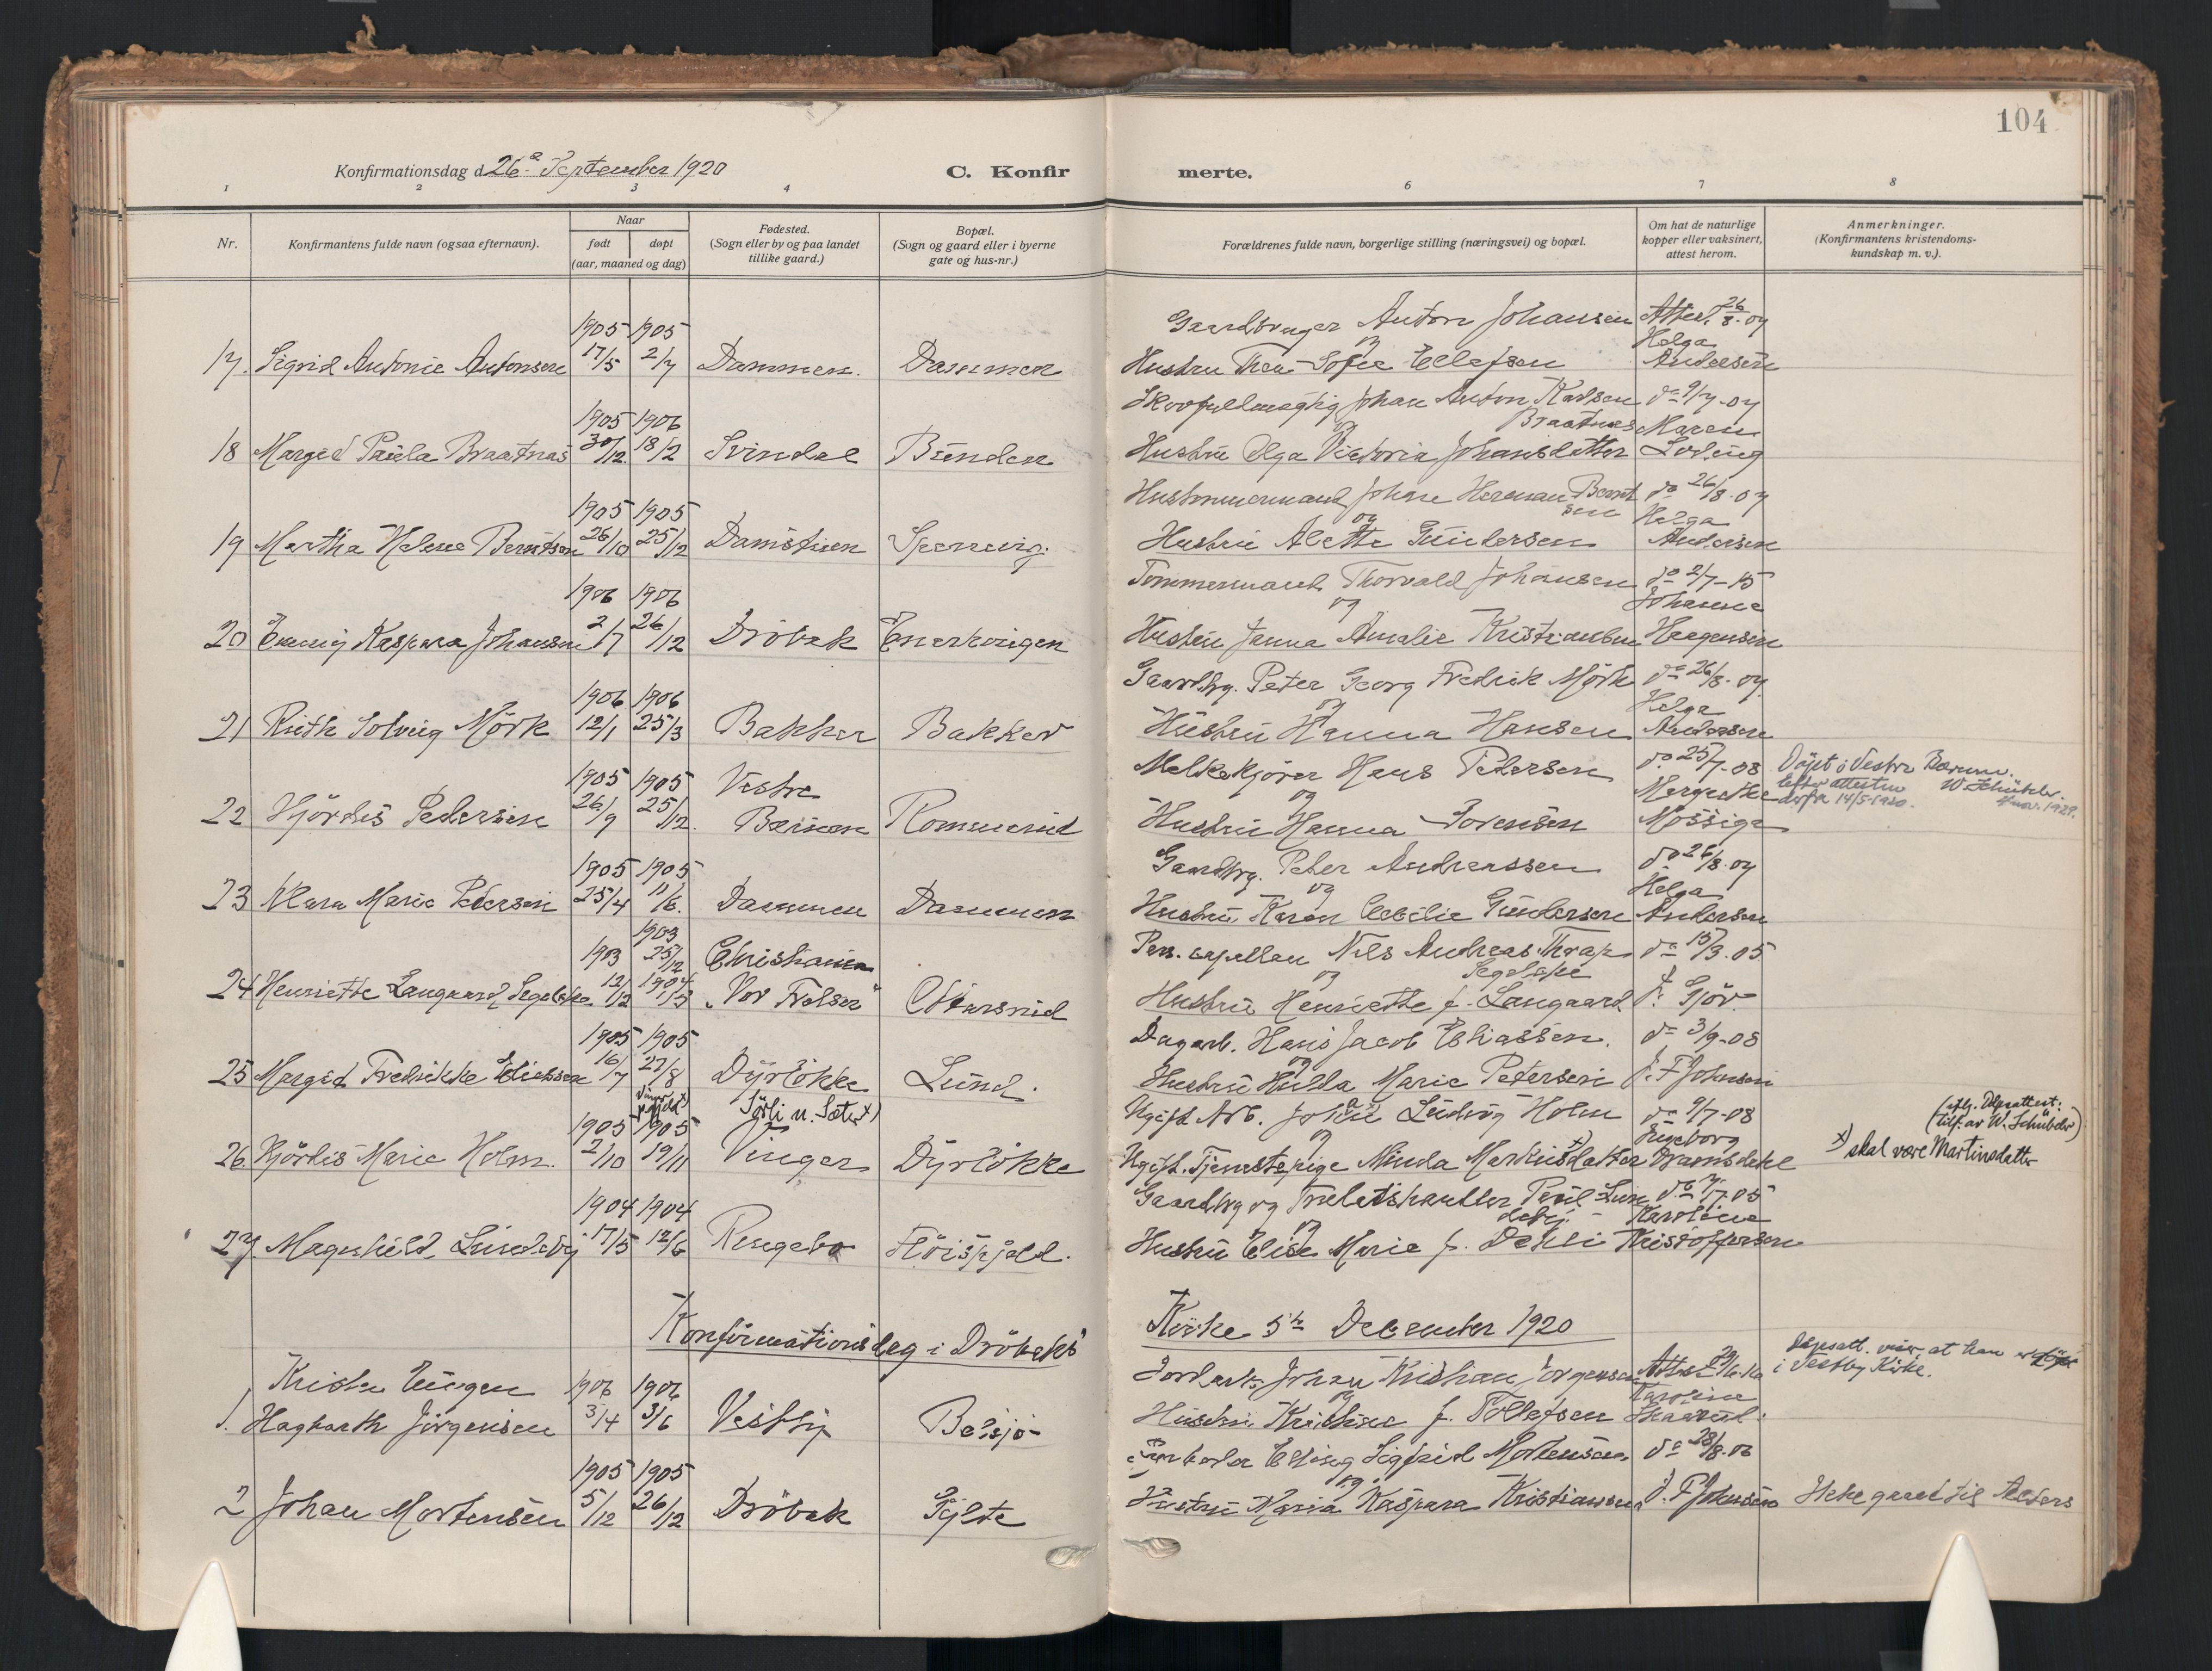 104
Konfirmationsdag d. 26de September 1920
C. Konfirmerte.
1 2 3 4 6 7 8
Nr.
Konfirmantens fulde navn (ogsaa efternavn).
Naar
født
døpt
(aar, maaned og dag)
Fødested.
(Sogn eller by og paa landet
tillike gaard.)
Bopæl.
(Sogn og gaard eller i byerne
gate og hus-nr.)
Forældrenes fulde navn, borgerlige stilling (næringsvei) og bopæl.
Om hat de naturlige
kopper eller vaksinert,
attest herom.
Anmerkninger.
(Konfirmantens kristendoms-
kundskap m. v.).
1905 1905 Gaardbruger Anton Johansen Attest 26/8-07
og Helga
17. Sigrid Antonie Antonsen 17/5 2/7 Dammen. Dammen Hustru Thea Sofie Ellefsen Andersen
1905 1906 Skovfuldmægtig Johan Anton Karlsen do 9/7-07
Braatnas Maren
18 Margid Paula Braatnas 30/12 18/2 Svindal Bunden Hustru Olga Victoria Johansdatter
1905 1905 Johan Herman Bernt do 26/8-07
sen
og Helga
19 Martha Helene Berntsen 26/10 25/12 Damstuen Hustru Alette Gundersen Andersen
1906 1906 Tømmermand Thorvald Johansen do 2/7-15
og Johanne
20 Kaspara Johansen 2/7 26/12 Drøbak Hustru Janna Amalie Kristiansen Haagensen
1906 1906 Gaardbrg. Peter Georg Fredrik Mørk do 26/8-07
og Helga
21 Ruth Solveig Mørk 12/1 25/3 Bakker Bakker Hustru Hanna Hansen Andersen
1905 1905 Vestre Melkekjører Hans Pedersen do 25/7-08 Døpt i Vestre Bærum.
og Margrethe Efter attesten W. Schübeler.
22 Hjørdis Pedersen 26/9 25/12 Bærum Rommerud Hustru Hanna Sorensen Møssige derfra 14/5-1920. 1929.
1905 1905 Gaardbrg. Peter Andreassen do 26/8-07
og Helga
23 Klara Marie Pedersen 25/4 11/6. Dammen Dammen Hustru Karen Cecilie Gundersen Andersen
1903 1903 25/12 Christiania Pers. capellan Nils Andreas Thrap do 15/3-05
og Segelcke
24 Henriette Langaard Segelcke 12/12 1904 1/3 "Vor Frelser" Hustru Henriette f. Langaard J. Gjør
1905 1905 Dagarb. Hans Jacob Eliassen. do 3/9-08
og
25 Margit Fredrikke Eliassen 16/7 27/8 Dyrløkke Lund. Hustru Hulda Marie Petersen J. F Johnsen
Vinger x) Sørli u. Sæter x)
1905 1905 Ugift Arb. Johan Ludvig Holm do 9/7-08 (iflg. Dåpsattest:
og Ingeborg (tilf. av W. Schübeler)
26. Hjørdis Marie Holm. 2/10 19/11 Vinger Dyrløkke Ugift. Tjenestepige Minda Markusdatter x) Dramsdahl x) skal være Martinsdatter
1904 1904 Gaardbrg og Trælasthandler Paul Lun do 17-05
deby. Karoline
og
27 Magnhild Lundeby 17/5 12/6 Ringebo Høispjeld. Hustru Elise Marie f. Dehli Kristoffersen
Konfirmationsdag i Drøbaks Kirke 5te December 1920
Krister Eugen 1906 1906 Johan Kristian Jørgensen Attest 29/6- Dåpsatt. viser at han er døpt
og Karoline i Vestby Kirke.
1. Hagbarth Jørgensen 3/4 3/6 Vestby Bølsjø Hustru Kristine f. Tollefsen Skaarud.
1905 1905 Elling Sigfrid Mortensen do 28/8-06
og
2 Johan Mortensen 5/12 26/12 Drøbak Sylte Hustru Maria Kaspara Kristiansen J. F Johnsen Ikke gaaet til Alters